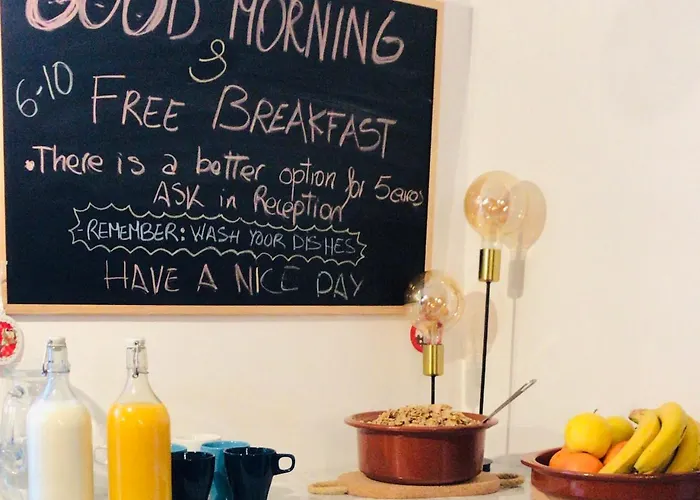 GOOD MORNING
6-10
FREE BREAKFAST
• There is a better option for 5 euros
ASK in Reception
- REMEMBER: WASH YOUR DISHES
HAVE A NICE DAY